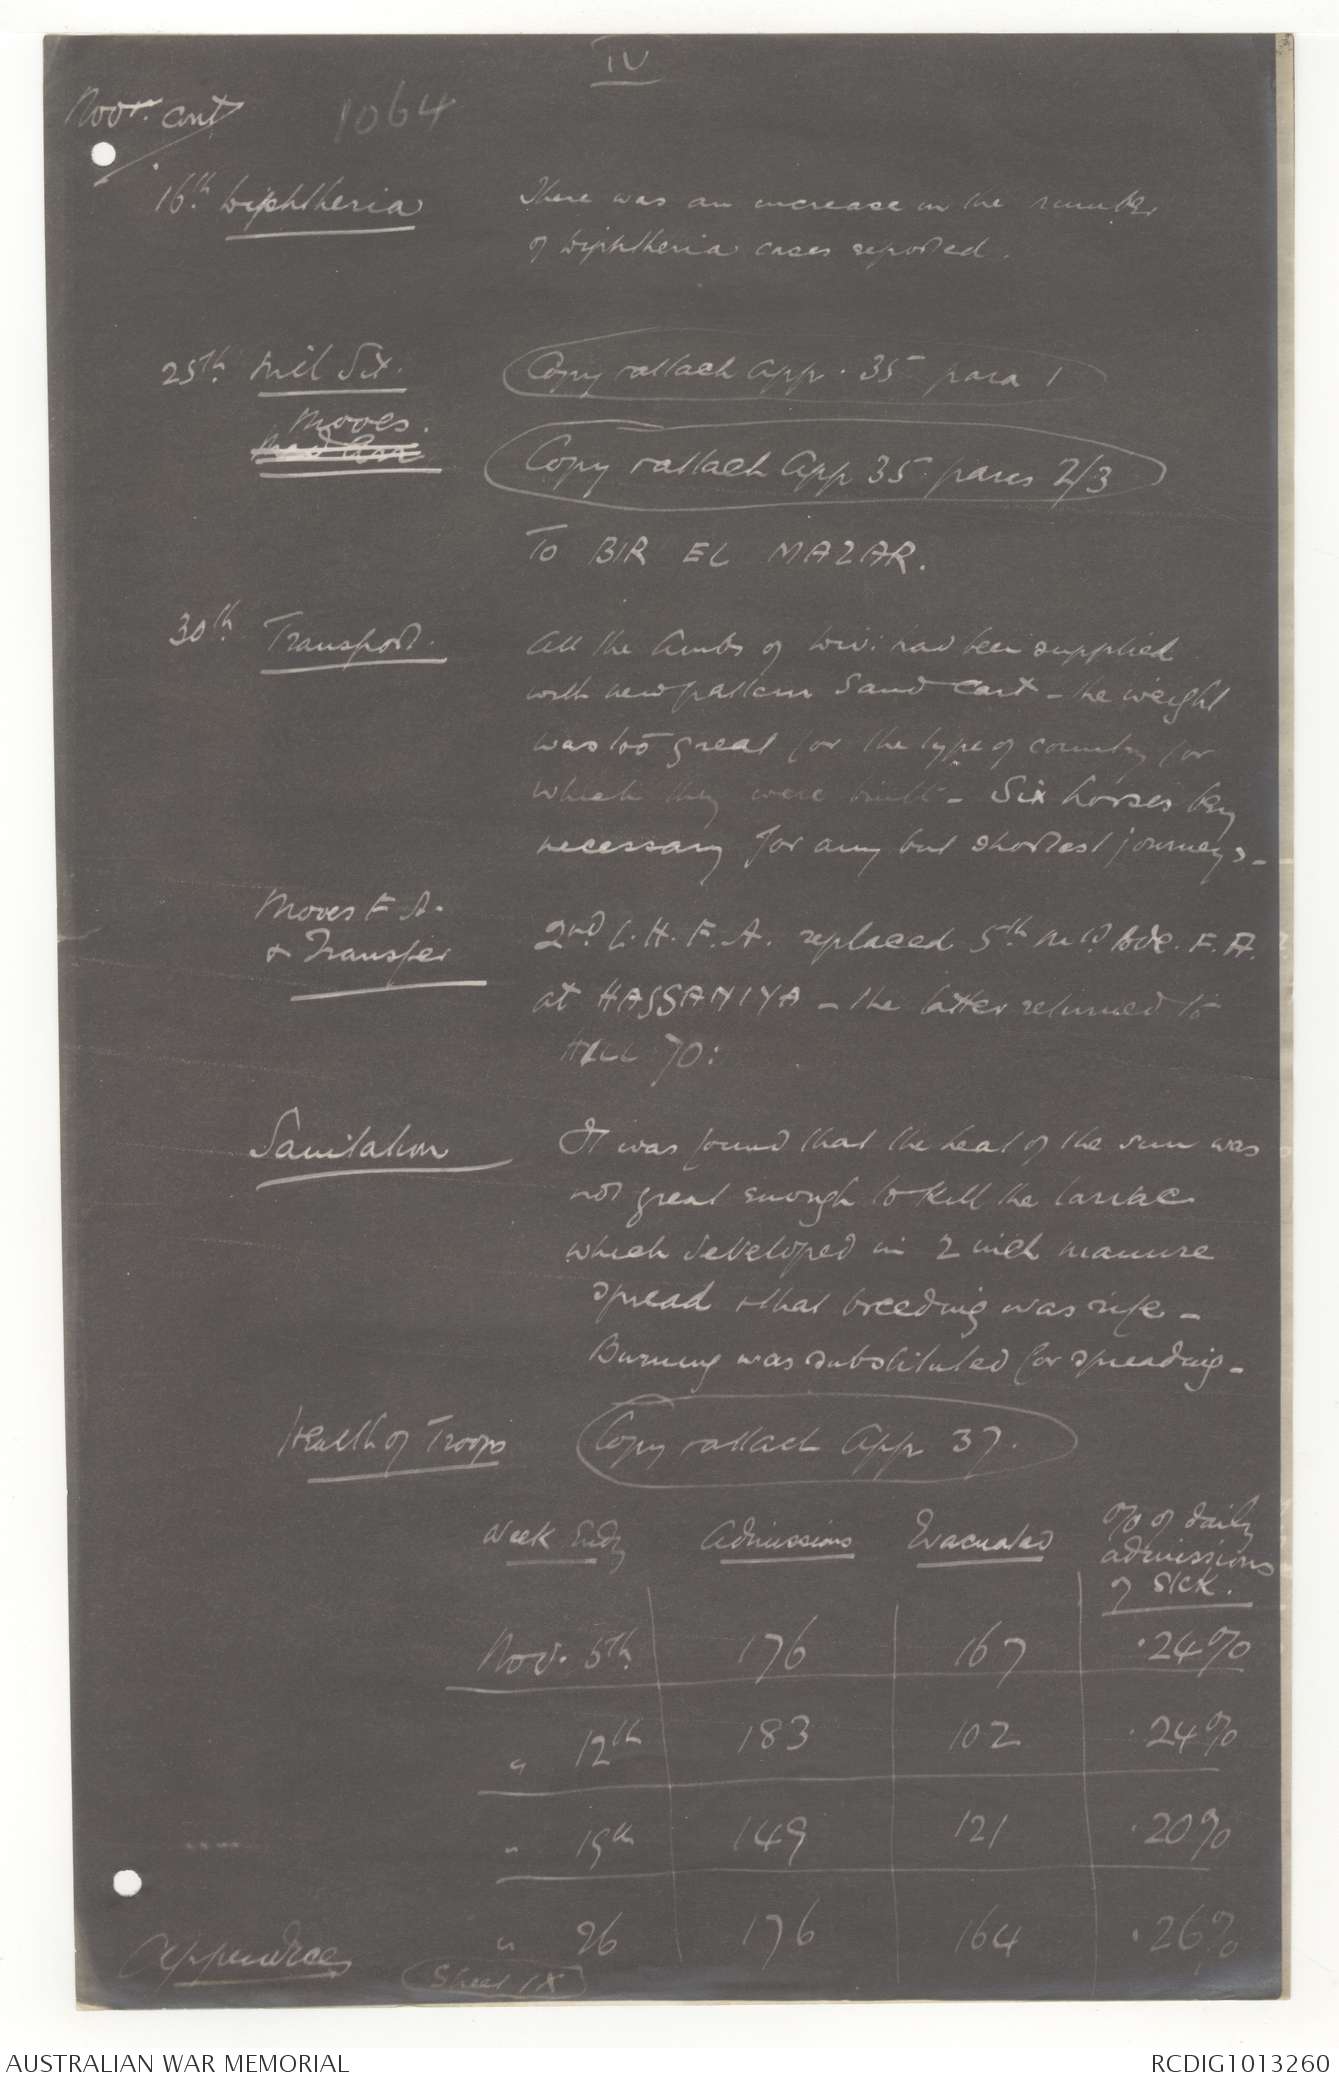 IV
Novr. cont
1064
16th. Diphtheria
There was an increase in the number
of Diphtheria cases reported.
25th. Mil Sit.
Copy & attach App. 35 para 1
Moves.
Copy & attach App 35 paras 2/3
To BIR EL MAZAR.
30th. Transport.
All the Ambs of Div: had been supplied
with new pattern Sand Cart - the weight
was too great for the type of country for
which they were built - Six horses being
necessary for any but shortest journeys -
Moves F. A.
& Transfer
2nd L. H. F. A. replaced 5th Mtd Bde. F. A.
at HASSANIYA - the latter returned to
HILL 70:
Sanitation
It was found that the heat of the sun was
not great enough to kill the larvae
which developed in 2 inch manure
spread & that breeding was rife -
Burning was substituted for spreading -
Health of Troops
Copy & attach App 37.
Week Endg
Admissions
Evacuated
% of daily
admissions
of sick.
Nov. 5th. 176 167 .24%
" 12th 183 102 .24%
" 19th 149 121 .20%
" 26 176 164 .26%
Appendices
Sheet IX
AUSTRALIAN WAR MEMORIAL
RCDIG1013260